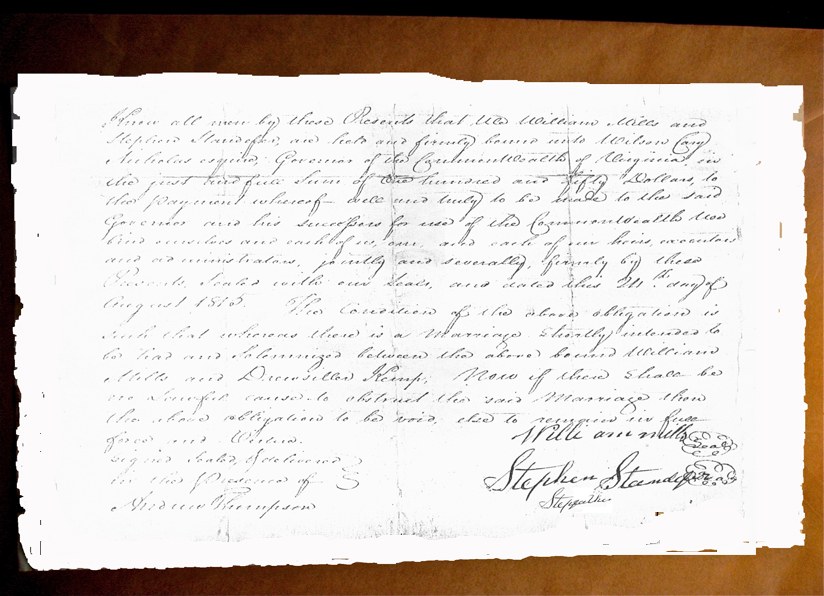 Know all men by these Presents that We William Mills and
Stephen Standefer, are held and firmly bound unto Wilson Cary
Nicholas esquire, Governor of the Commonwealth of Virginia, in
the just and full Sum of One hundred and fifty Dollars, to
the payment whereof well and truly to be made to the said
Governor and his successors for use of the Commonwealth We
bind ourselves and each of us, our, and each of our heirs, executors
and administrators, jointly and severally, firmly by these
Presents, Sealed with our Seals, and dated this 24th day of
August 1815. The Condition of the above obligation is
such that whereas there is a Marriage Shortly intended to
be had and Solemnized between the above bound William
Mills and Drewsiller Kemp; Now if there Shall be
no Lawful cause to obstruct the said Marriage then
the above obligation to be void, else to remain in full
force and Virtue.
William mills Seal
Signed Sealed, & delivered
in the Presence of
Stephen Standefer Seal
Stepfather
Andrew Thompson